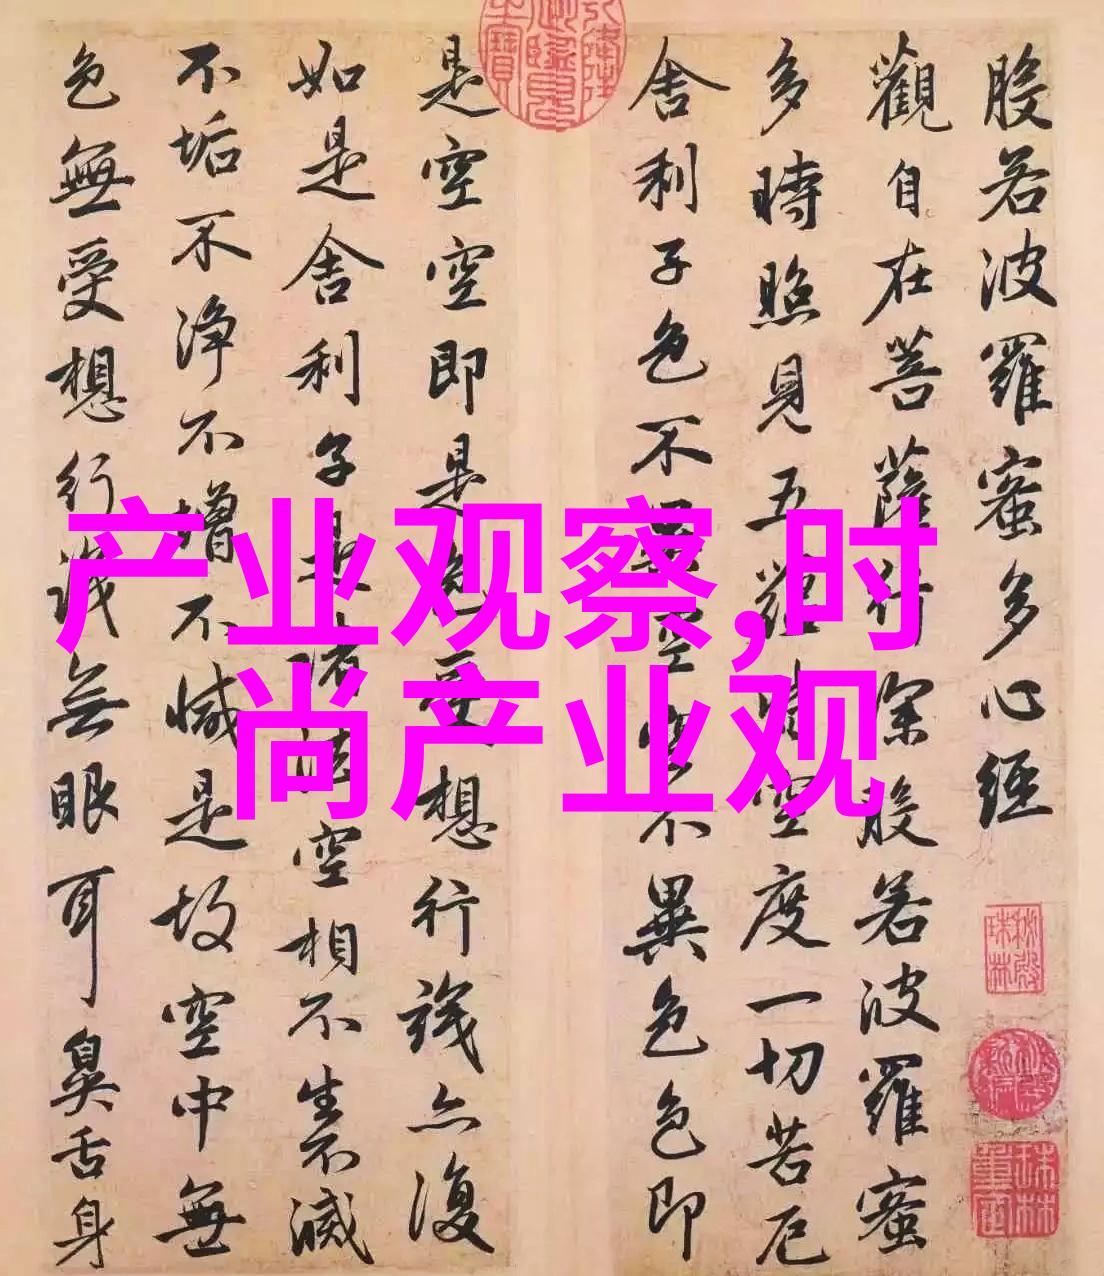 般若波羅蜜多心經
觀自在菩薩行深般若波羅蜜
多時照見五蘊皆空度一切苦厄
舍利子色不異空空不異色色即
是空空即是色受想行識亦復
如是舍利子是諸法空相不生不滅
不垢不净不增不減是故空中無
色無受想行識無眼耳鼻舌身
产业观察,时
尚产业观